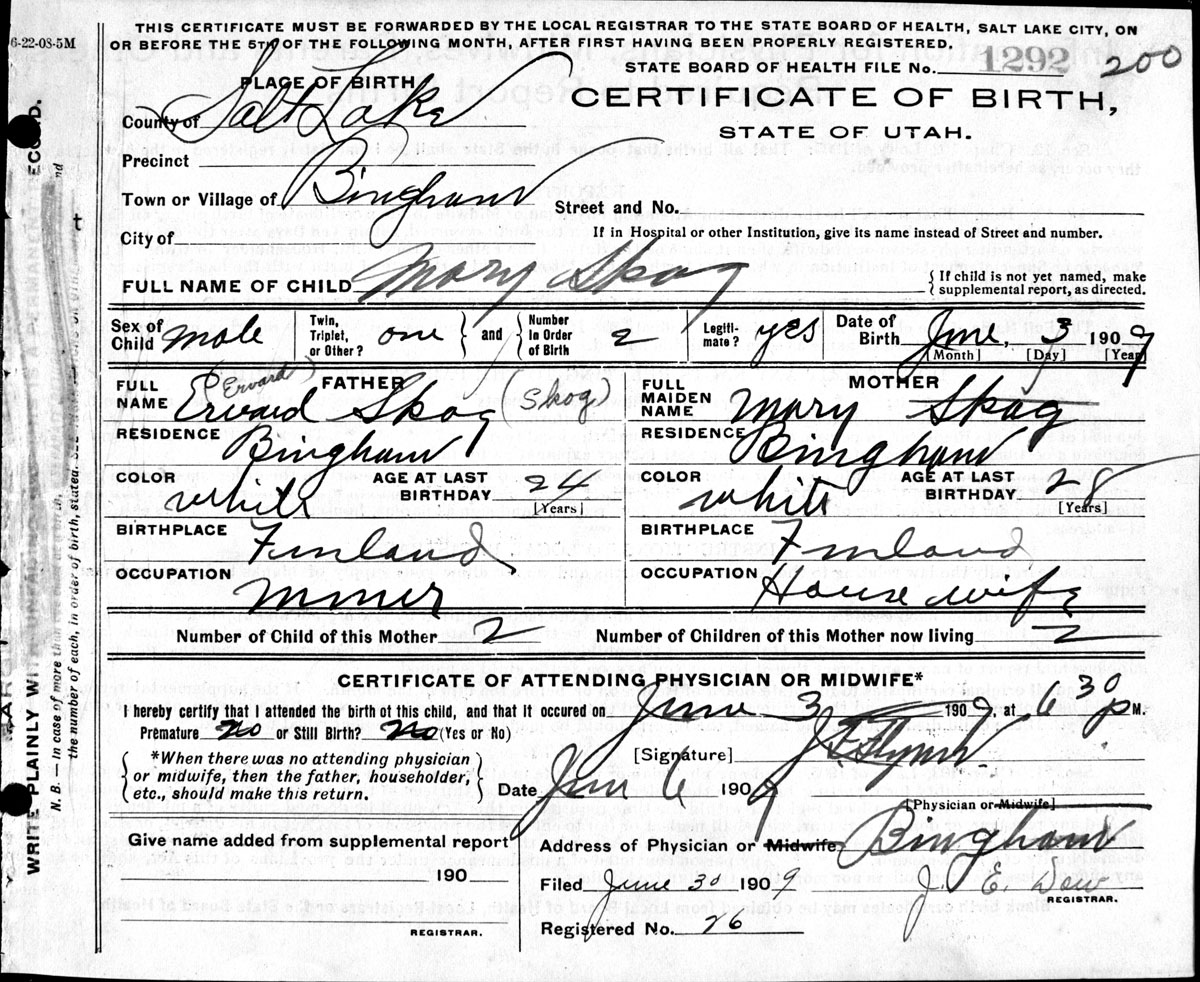 6-22-08-5M
THIS CERTIFICATE MUST BE FORWARDED BY THE LOCAL REGISTRAR TO THE STATE BOARD OF HEALTH, SALT LAKE CITY, ON
OR BEFORE THE 5TH OF THE FOLLOWING MONTH, AFTER FIRST HAVING BEEN PROPERLY REGISTERED.
STATE BOARD OF HEALTH FILE No. 1292 200
PLACE OF BIRTH
CERTIFICATE OF BIRTH,
STATE OF UTAH.
County of Salt Lake
Precinct
Town or Village of Bingham
Street and No.
City of
If in Hospital or other Institution, give its name instead of Street and number.
FULL NAME OF CHILD Mary Skog
{ If child is not yet named, make supplemental report, as directed.
Sex of Child male Twin, Triplet, or Other? one } and { Number in Order of Birth 2 Legitimate? yes Date of Birth June, 3 1909
[Month] [Day] [Year]
FATHER
FULL NAME Ervard Skog (Ervard) (Skog)
RESIDENCE Bingham
COLOR white AGE AT LAST BIRTHDAY 24 [Years]
BIRTHPLACE Finland
OCCUPATION miner
MOTHER
FULL MAIDEN NAME Mary Skog
RESIDENCE Bingham
COLOR white AGE AT LAST BIRTHDAY 28 [Years]
BIRTHPLACE Finland
OCCUPATION House wife
Number of Child of this Mother 2 Number of Children of this Mother now living 2
CERTIFICATE OF ATTENDING PHYSICIAN OR MIDWIFE*
I hereby certify that I attended the birth of this child, and that it occured on June 3 1909, at 630 p M.
Premature no or Still Birth? no (Yes or No)
[Signature]
*When there was no attending physician
or midwife, then the father, householder,
etc., should make this return.
Date June 6 190
[Physician or Midwife]
Give name added from supplemental report
190
REGISTRAR.
Address of Physician or Midwife Bingham
Filed June 30 1909 J. E. Dew
REGISTRAR.
Registered No. 26
WRITE PLAINLY WITH UNFADING
N. B.—In case of more than
the number of each, in order of birth, stated.